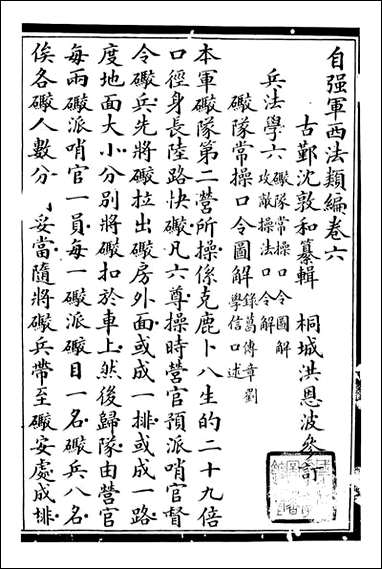 自强軍西法類編卷六
古鄞沈敦和纂輯 桐城洪恩波參訂
兵法學六 礮隊常操口令圖解 攻敵操法口令解
礮隊常操口令圖解 錄葛傳韋劉學信口述
本軍礮隊第二營所操係克鹿卜八生的二十九倍
口徑身長陸路快礮凡六尊操時營官預派哨官督
令礮兵先將礮拉出礮房外面或成一排或成一路
度地面大小分別將礮扣於車上然後歸隊由營官
每兩礮派哨官一員每一礮派礮目一名礮兵八名
俟各礮人數分 妥當隨將礮兵帶至礮安處成排